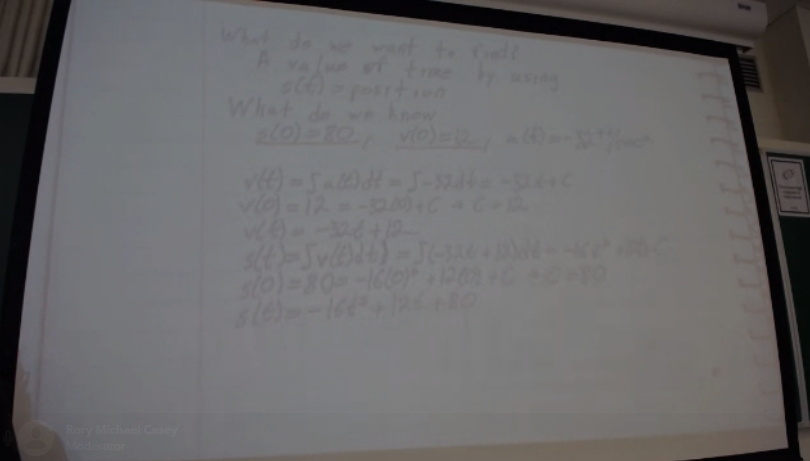 What do we want to find?
A value of time by using
s(t) = position
What do we know
s(0)=80, v(0)=12, a(t)=-32
v(t) = ∫a(t)dt = ∫-32dt = -32t+C
v(0) = 12 = -32(0)+C → C=12
v(t) = -32t+12
s(t) = ∫v(t)dt = ∫(-32t+12)dt = -16t² +12t+C
s(0) = 80 = -16(0)² +12(0)+C → C=80
s(t) = -16t² + 12t + 80
Rory Michael Casey
Moderator